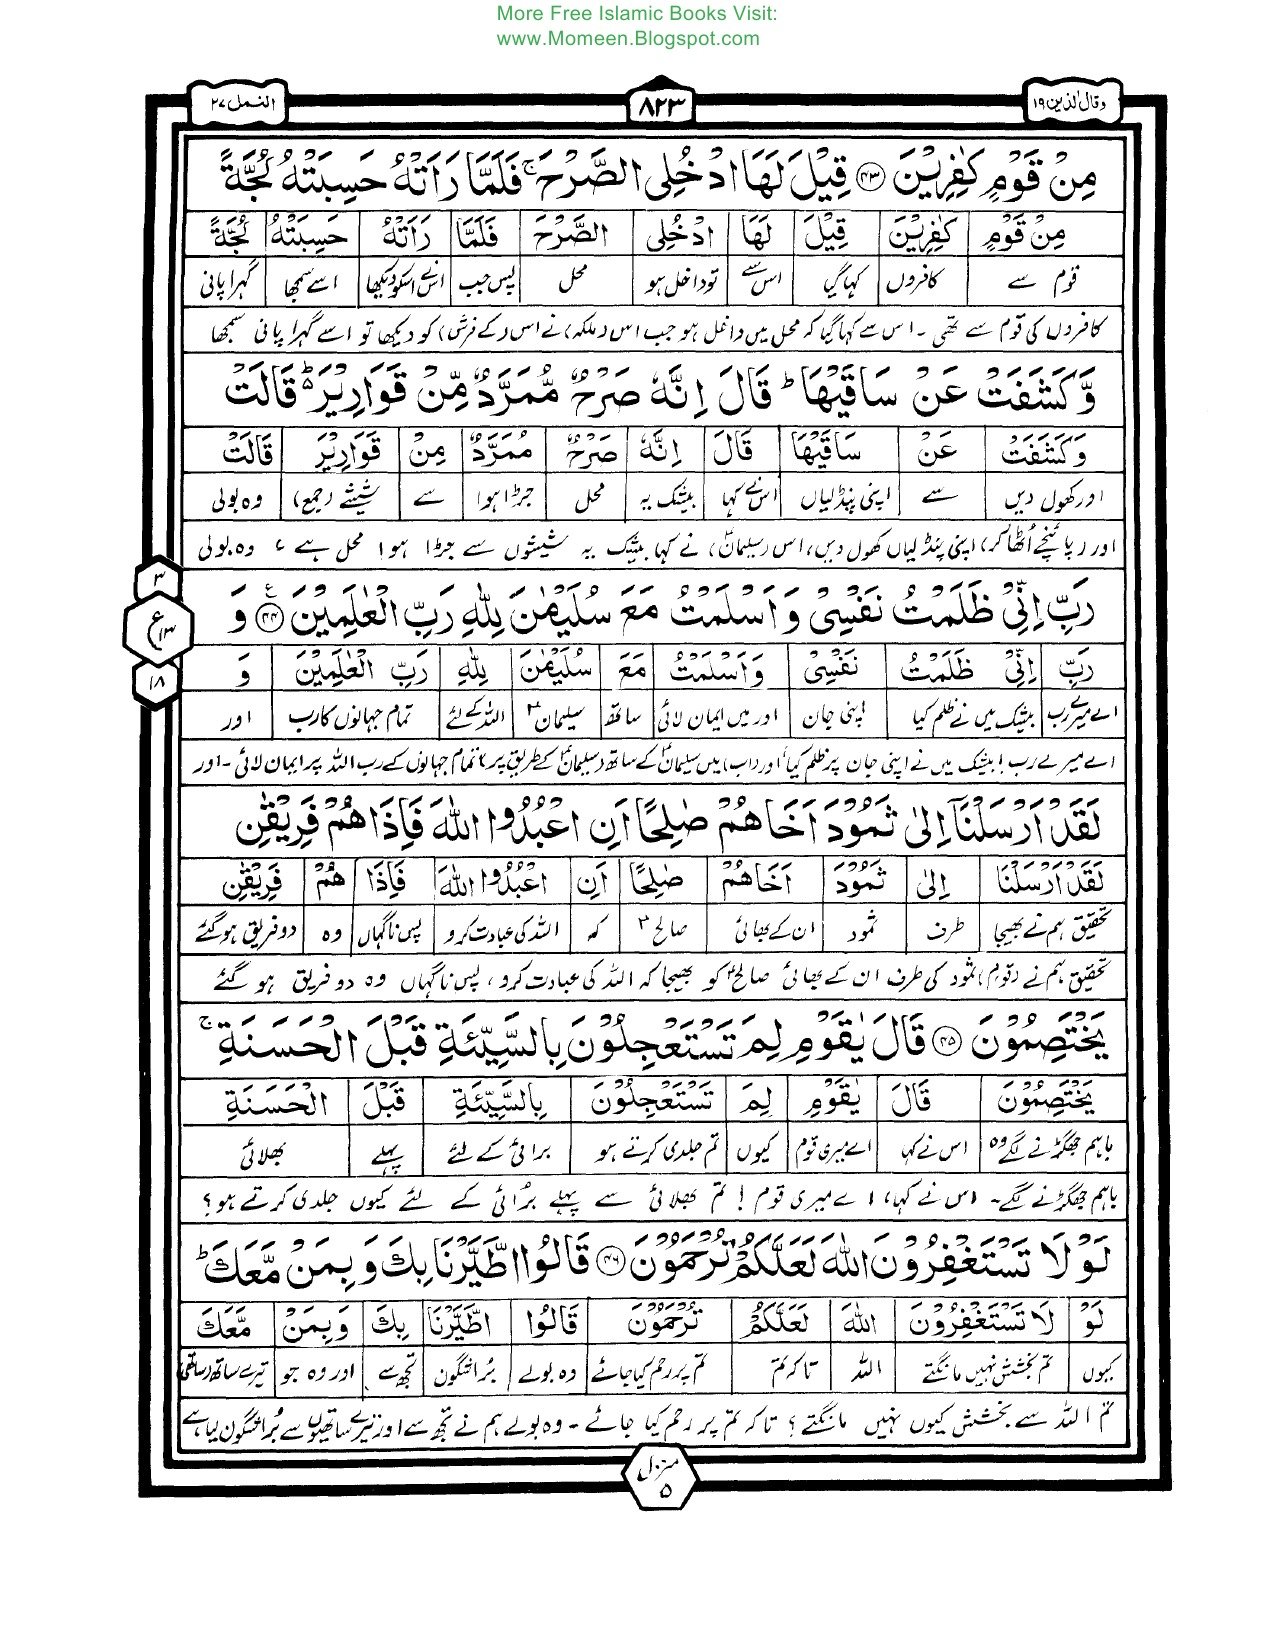 More Free Islamic Books Visit:
www.Momeen.Blogspot.com
وقال الذین ۱۹
۸۲۳
النمل ۲۷
مِنْ قَوْمٍ كٰفِرِيْنَ ۴۳ قِيْلَ لَهَا ادْخُلِى الصَّرْحَ ۚ فَلَمَّا رَاَتْهُ حَسِبَتْهُ لُجَّةً
مِنْ قَوْمٍ كٰفِرِيْنَ قِيْلَ لَهَا ادْخُلِى الصَّرْحَ فَلَمَّا رَاَتْهُ حَسِبَتْهُ لُجَّةً
قوم سے کافروں کہا گیا اس سے تو داخل ہو محل پس جب اسنے اسکو دیکھا اسے سمجھا گہرا پانی
کافروں کی قوم سے تھی ۔ اس سے کہا گیا کہ محل میں داخل ہو جب اس (ملکہ) نے اس (کے فرش) کو دیکھا تو اسے گہرا پانی سمجھا
وَّكَشَفَتْ عَنْ سَاقَيْهَا ؕ قَالَ اِنَّهٗ صَرْحٌ مُّمَرَّدٌ مِّنْ قَوَارِيْرَ ؕ قَالَتْ
وَكَشَفَتْ عَنْ سَاقَيْهَا قَالَ اِنَّهٗ صَرْحٌ مُمَرَّدٌ مِنْ قَوَارِيْرَ قَالَتْ
اور کھول دیں سے اپنی پنڈلیاں اس نے کہا بیشک یہ محل جڑا ہوا سے شیشے (جمع) وہ بولی
اور (پائنچے اُٹھا کر) اپنی پنڈلیاں کھول دیں، اس (سلیمانؑ) نے کہا بیشک یہ شیشوں سے جڑا ہوا محل ہے ، وہ بولی
رَبِّ اِنِّىْ ظَلَمْتُ نَفْسِىْ وَاَسْلَمْتُ مَعَ سُلَيْمٰنَ لِلّٰهِ رَبِّ الْعٰلَمِيْنَ ۴۴ ع وَ
رَبِّ اِنِّىْ ظَلَمْتُ نَفْسِىْ وَاَسْلَمْتُ مَعَ سُلَيْمٰنَ لِلّٰهِ رَبِّ الْعٰلَمِيْنَ وَ
اے میرے رب بیشک میں نے ظلم کیا اپنی جان اور میں ایمان لائی ساتھ سلیمانؑ اللہ کے لئے تمام جہانوں کا رب اور
اے میرے رب ! بیشک میں نے اپنی جان پر ظلم کیا اور (اب) میں سلیمانؑ کے ساتھ (سلیمانؑ کے طریق پر) تمام جہانوں کے رب اللہ پر ایمان لائی ۔ اور
۳
ع
۱۳
۱۸
لَقَدْ اَرْسَلْنَاۤ اِلٰى ثَمُوْدَ اَخَاهُمْ صٰلِحًا اَنِ اعْبُدُوا اللّٰهَ فَاِذَا هُمْ فَرِيْقٰنِ
لَقَدْ اَرْسَلْنَا اِلٰى ثَمُوْدَ اَخَاهُمْ صٰلِحًا اَنِ اعْبُدُوا اللّٰهَ فَاِذَا هُمْ فَرِيْقٰنِ
تحقیق ہم نے بھیجا طرف ثمود ان کے بھائی صالحؑ کہ اللہ کی عبادت کرو پس ناگہاں وہ دو فریق ہو گئے
تحقیق ہم نے (قوم) ثمود کی طرف ان کے بھائی صالحؑ کو بھیجا کہ اللہ کی عبادت کرو ، پس ناگہاں وہ دو فریق ہو گئے
يَخْتَصِمُوْنَ ۴۵ قَالَ يٰقَوْمِ لِمَ تَسْتَعْجِلُوْنَ بِالسَّيِّئَةِ قَبْلَ الْحَسَنَةِ ۚ
يَخْتَصِمُوْنَ قَالَ يٰقَوْمِ لِمَ تَسْتَعْجِلُوْنَ بِالسَّيِّئَةِ قَبْلَ الْحَسَنَةِ
باہم جھگڑنے لگے وہ اس نے کہا اے میری قوم کیوں تم جلدی کرتے ہو برائی کے لئے پہلے بھلائی
باہم جھگڑنے لگے۔ اس نے کہا، اے میری قوم ! تم بھلائی سے پہلے بُرائی کے لئے کیوں جلدی کرتے ہو ؟
لَوْ لَا تَسْتَغْفِرُوْنَ اللّٰهَ لَعَلَّكُمْ تُرْحَمُوْنَ ۴۶ قَالُوا اطَّيَّرْنَا بِكَ وَبِمَنْ مَّعَكَ ؕ
لَوْ لَا تَسْتَغْفِرُوْنَ اللّٰهَ لَعَلَّكُمْ تُرْحَمُوْنَ قَالُوا اطَّيَّرْنَا بِكَ وَبِمَنْ مَّعَكَ
کیوں تم بخشش نہیں مانگتے اللہ تاکہ تم تم پر رحم کیا جائے وہ بولے برا شگون تجھ سے اور وہ جو تیرے ساتھ (ساتھی)
تم اللہ سے بخشش کیوں نہیں مانگتے ؟ تاکہ تم پر رحم کیا جائے ۔ وہ بولے ہم نے تجھ سے اور تیرے ساتھیوں سے بُرا شگون لیا ہے
منزل
۵